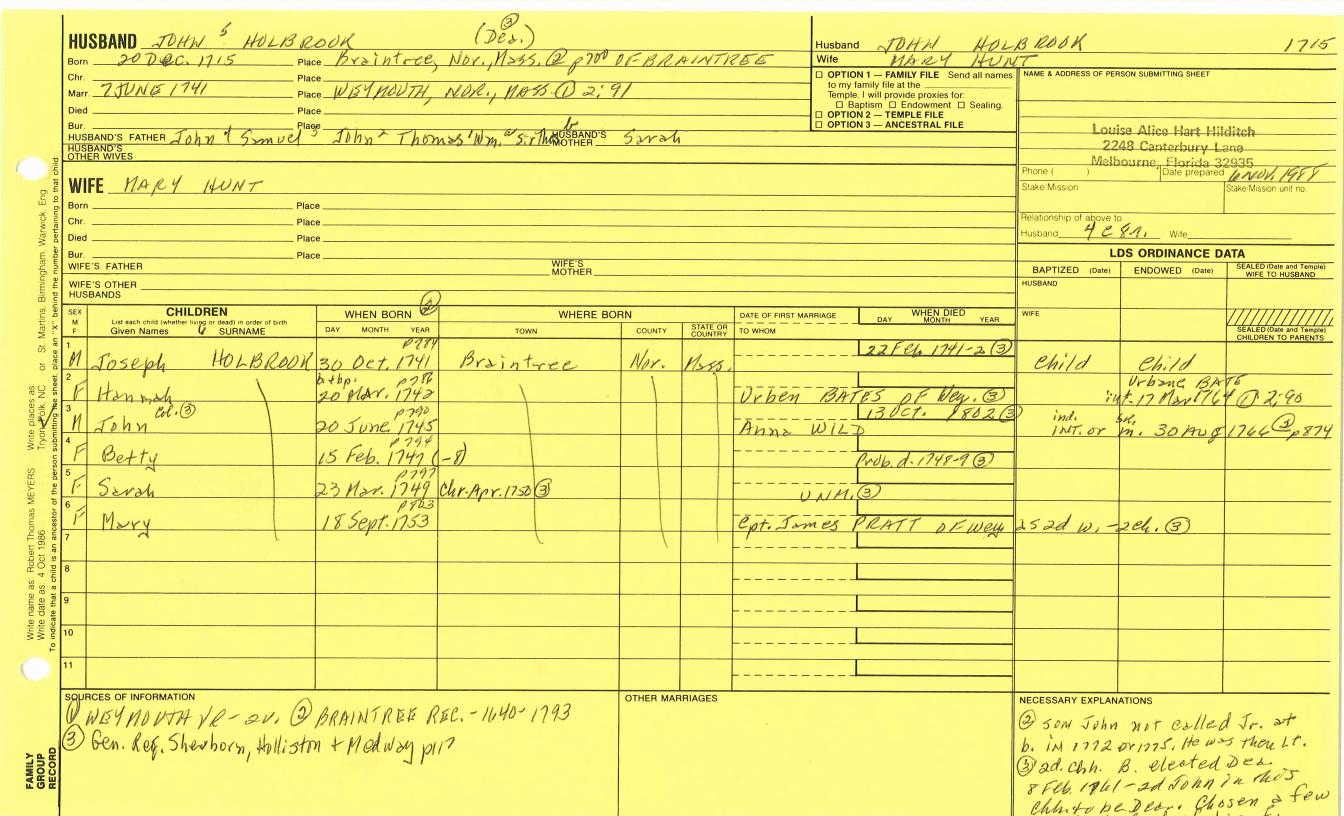 (Dea.) ③
HUSBAND JOHN 5 HOLBROOK
Born 20 DEC. 1715 Place Braintree, Nor., Mass. ② p700 OF BRAINTREE
Chr. Place
Marr 7 JUNE 1741 Place WEYMOUTH, NOR., MASS ① 2:91
Died Place
Bur. Place
HUSBAND'S FATHER John 4 Samuel 3 John 2 Thomas 1 Wm. HUSBAND'S MOTHER Sarah
HUSBAND'S OTHER WIVES
Husband JOHN HOLBROOK 1715
Wife MARY HUNT
☐ OPTION 1 — FAMILY FILE Send all names
to my family file at the
Temple. I will provide proxies for:
☐ Baptism ☐ Endowment ☐ Sealing.
☐ OPTION 2 — TEMPLE FILE
☐ OPTION 3 — ANCESTRAL FILE
NAME & ADDRESS OF PERSON SUBMITTING SHEET
Louise Alice Hart Hilditch
2248 Canterbury Lane
Melbourne, Florida 32935
Phone ( ) Date prepared 6 NOV. 1988
Stake Mission Stake-Mission unit no.
Relationship of above to
Husband 4 c 8 r. Wife
WIFE MARY HUNT
Born Place
Chr. Place
Died Place
Bur. Place
WIFE'S FATHER WIFE'S MOTHER
WIFE'S OTHER HUSBANDS
LDS ORDINANCE DATA
BAPTIZED (Date) ENDOWED (Date) SEALED (Date and Temple) WIFE TO HUSBAND
HUSBAND
WIFE
SEALED (Date and Temple) CHILDREN TO PARENTS
SEX M F CHILDREN WHEN BORN ② WHERE BORN DATE OF FIRST MARRIAGE WHEN DIED
List each child (whether living or dead) in order of birth
Given Names 6 SURNAME DAY MONTH YEAR TOWN COUNTY STATE OR COUNTRY TO WHOM DAY MONTH YEAR
p784
1 M Joseph HOLBROOK 30 Oct. 1741 Braintree Nor. Mass. 22 Feb 1741-2 ③ Child Child
p786
2 F Hannah b+bp. 20 Mar. 1742 Urben BATES OF Wey. ③ Urbane BATE int. 17 Mar 1764 ① 2:90
p790
3 M John Col. ③ 20 June 1745 Anna WILD 13 Oct. 1802 ③ ind. INT. or m. 30 AUG 1766 ② p874
p794
4 F Betty 15 Feb. 1747 (-8) Prob. d. 1748-9 ③
p797
5 F Sarah 23 Mar. 1749 Chr. Apr. 1750 ③ UNM. ③
p803
6 F Mary 18 Sept. 1753 Cpt. James PRATT OF Wey as 2d w. -2ch. ③
7
8
9
10
11
SOURCES OF INFORMATION
① WEYMOUTH VR - 2v. ② BRAINTREE REC. - 1640-1793
③ Gen. Reg. Sherborn, Holliston + Medway p117
OTHER MARRIAGES
NECESSARY EXPLANATIONS
② son John not called Jr. at
b. in 1772 or 1775. He was then Lt.
③ 2d. Chh. B. elected Dea.
8 Feb. 1761 - 2d John in this
chh. to be Dea. Chosen a few
Write name as: Robert Thomas MEYERS Write places as: Tryon, Polk, NC or St. Martins, Birmingham, Warwick, Eng
Write date as: 4 Oct 1986
To indicate that a child is an ancestor of the person submitting the sheet, place an "X" behind the number pertaining to that child.
FAMILY GROUP RECORD